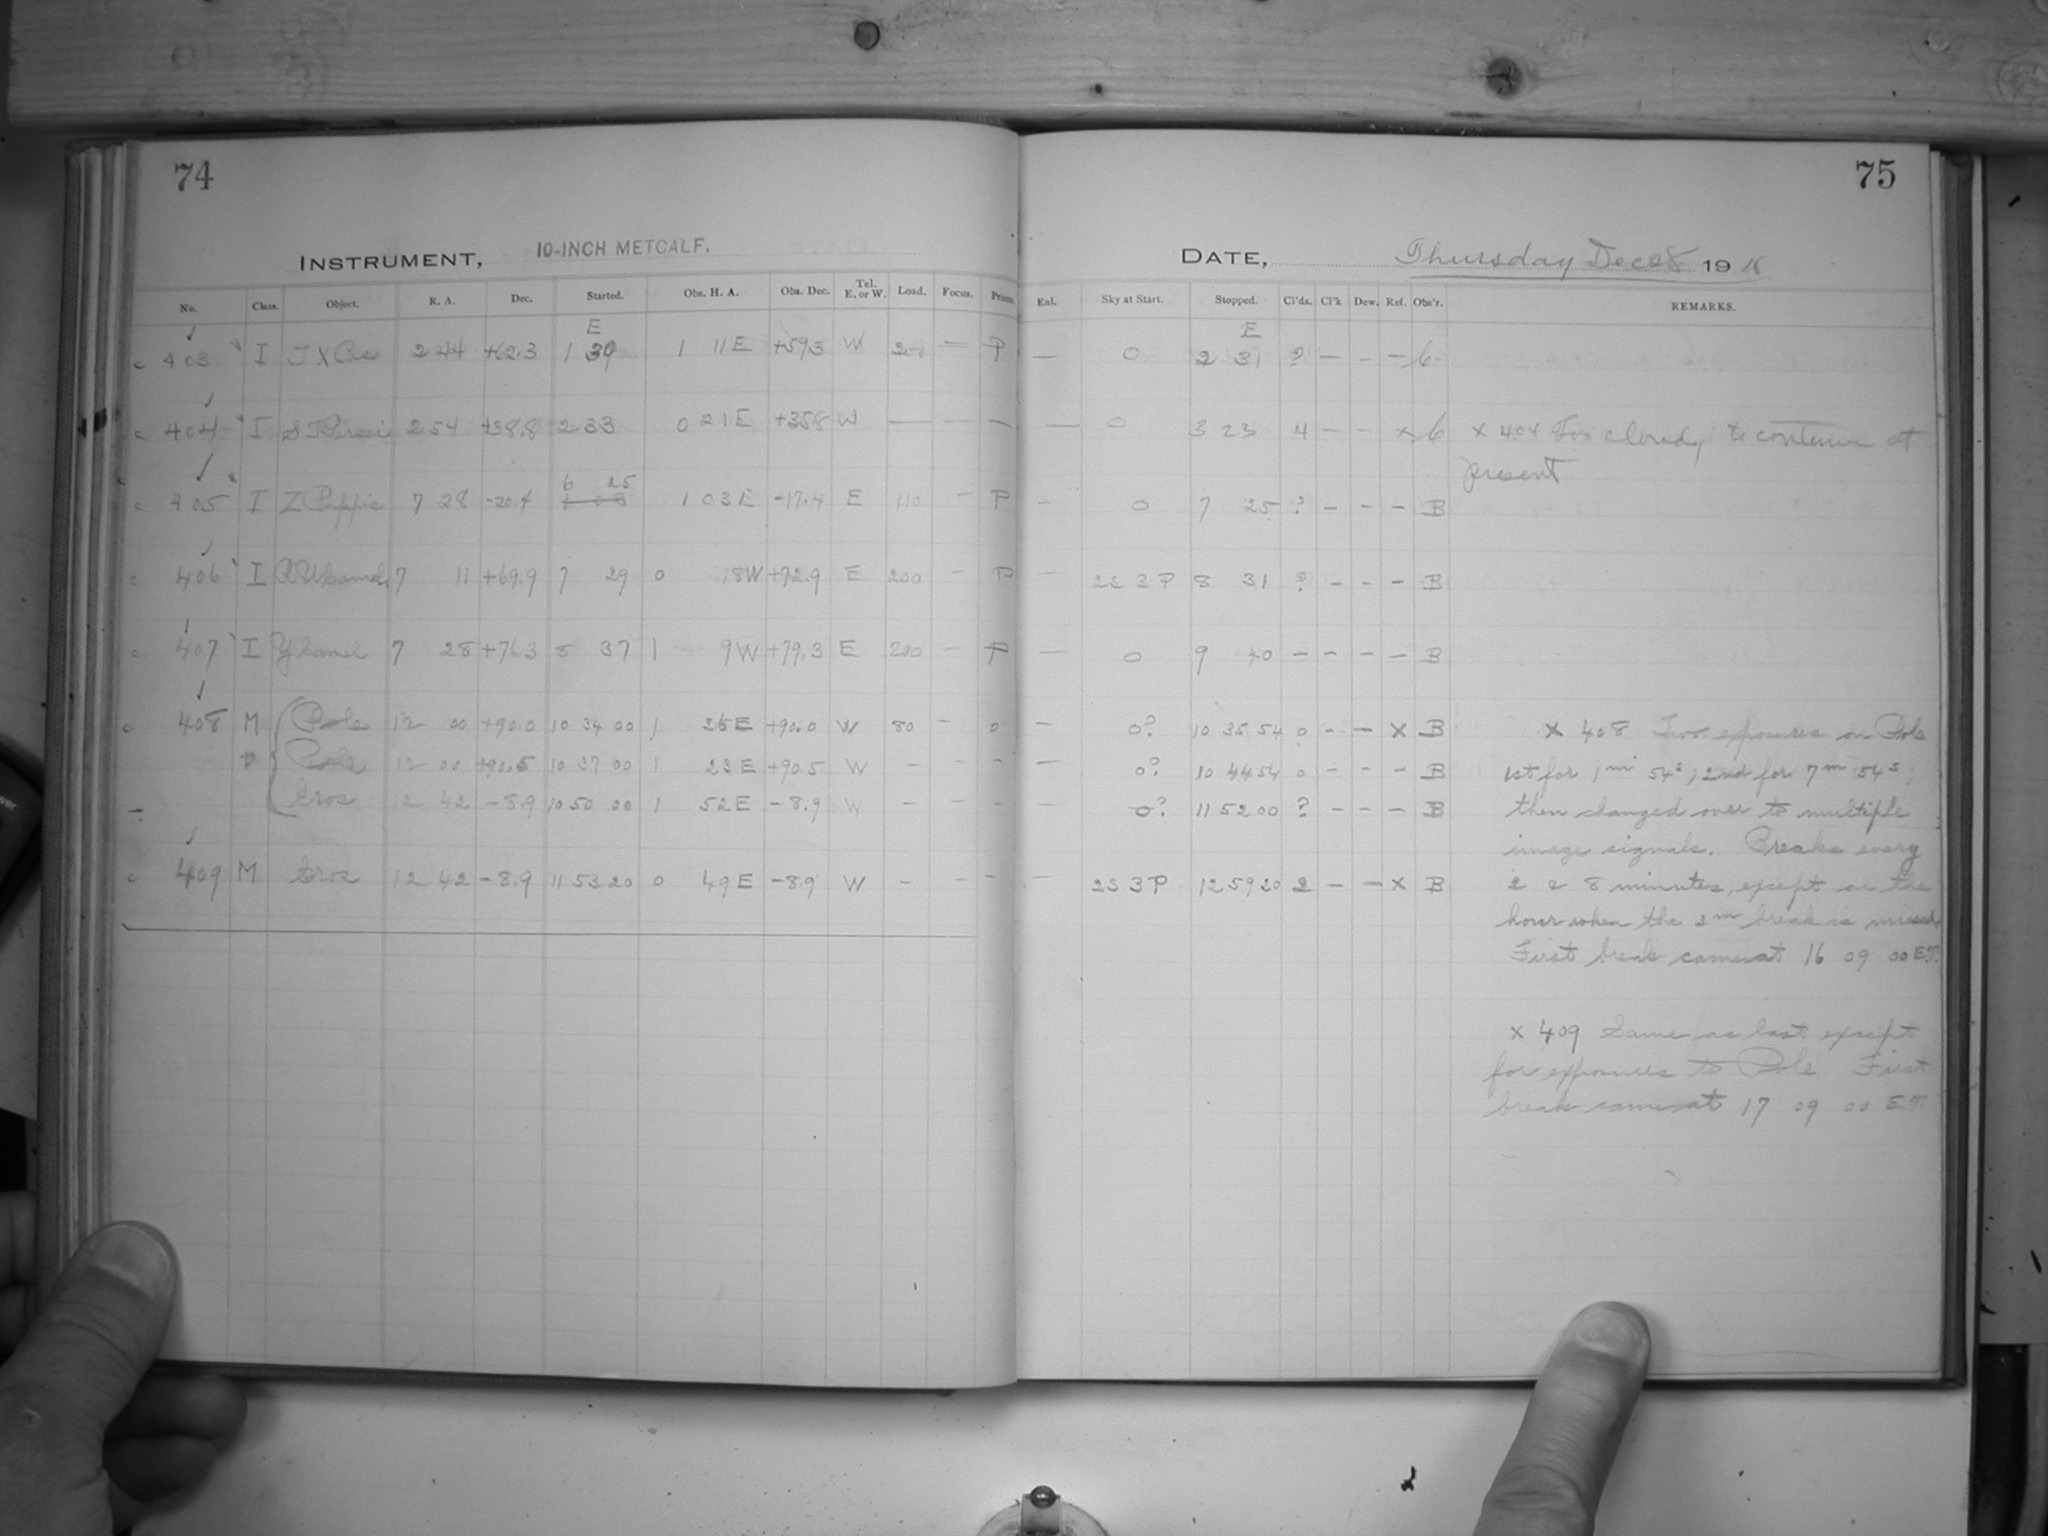 74
75
INSTRUMENT, 10-INCH METCALF.
DATE, Thursday Dec 19
No. Class. Object. R. A. Dec. Started. Obs. H. A. Obs. Dec. Tel. E. or W. Load. Focus. Prism.
Enl. Sky at Start. Stopped. Cl'ds. Cl'k Dew. Ref. Obs'r. REMARKS.
E
E
c 403 I 2 44 +62.3 1 39 1 11 E +59.3 W 200 — P
— 0 2 31 ? — — —
c 404 I 2 54 +38.8 2 33 0 21 E +35.8 W — — —
— 0 3 23 4 — — x x 404 Too cloudy to continue at
present
6 25
c 405 I Z Puppis 7 28 -20.4 1 03 E -17.4 E 110 — P
— 0 7 25 ? — — — B
c 406 I 7 11 +69.9 7 29 0 18 W +72.9 E 200 — P
— 2S 3P 8 31 ? — — — B
c 407 I Y Camel 7 28 +76.3 8 37 1 9 W +79.3 E 200 — P
— 0 9 40 — — — — B
c 408 M Pole 12 00 +90.0 10 34 00 1 26 E +90.0 W 80 — 0
— 0? 10 35 54 0 — — x B x 408 Two exposures on Pole
Pole 12 00 +90.5 10 37 00 1 23 E +90.5 W — — —
— 0? 10 44 54 0 — — — B 1st for 1m 54s; 2nd for 7m 54s;
Eros 12 42 -8.9 10 50 00 1 52 E -8.9 W — — —
— 0? 11 52 00 ? — — — B then changed over to multiple
image signals. Breaks every
c 409 M Eros 12 42 -8.9 11 53 20 0 49 E -8.9 W — — —
— 2S 3P 12 59 20 2 — — x B 2 & 8 minutes, except on the
hour when the 2m break is missed.
First break came at 16 09 00 ET.
x 409 Same as last except
for exposures to Pole. First
break came at 17 09 00 ET